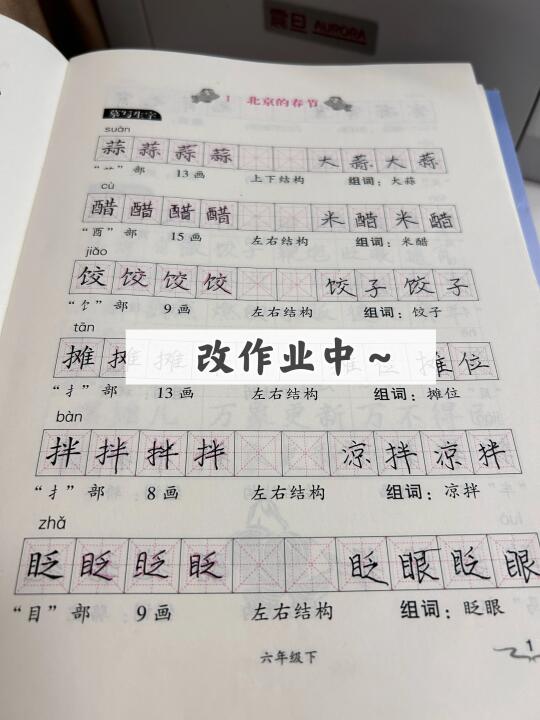 震旦 AURORA
1 北京的春节
摹写生字
suàn
蒜 蒜 蒜 蒜 大 蒜 大 蒜
“艹”部 13画 上下结构 组词：大蒜
cù
醋 醋 醋 醋 米 醋 米 醋
“酉”部 15画 左右结构 组词：米醋
jiǎo
饺 饺 饺 饺 饺 子 饺 子
“饣”部 9画 左右结构 组词：饺子
tān
摊 摊 摊 摊 位 摊 位
改作业中~
“扌”部 13画 左右结构 组词：摊位
bàn
拌 拌 拌 拌 凉 拌 凉 拌
“扌”部 8画 左右结构 组词：凉拌
zhǎ
眨 眨 眨 眨 眨 眼 眨 眼
“目”部 9画 左右结构 组词：眨眼
六年级下
1